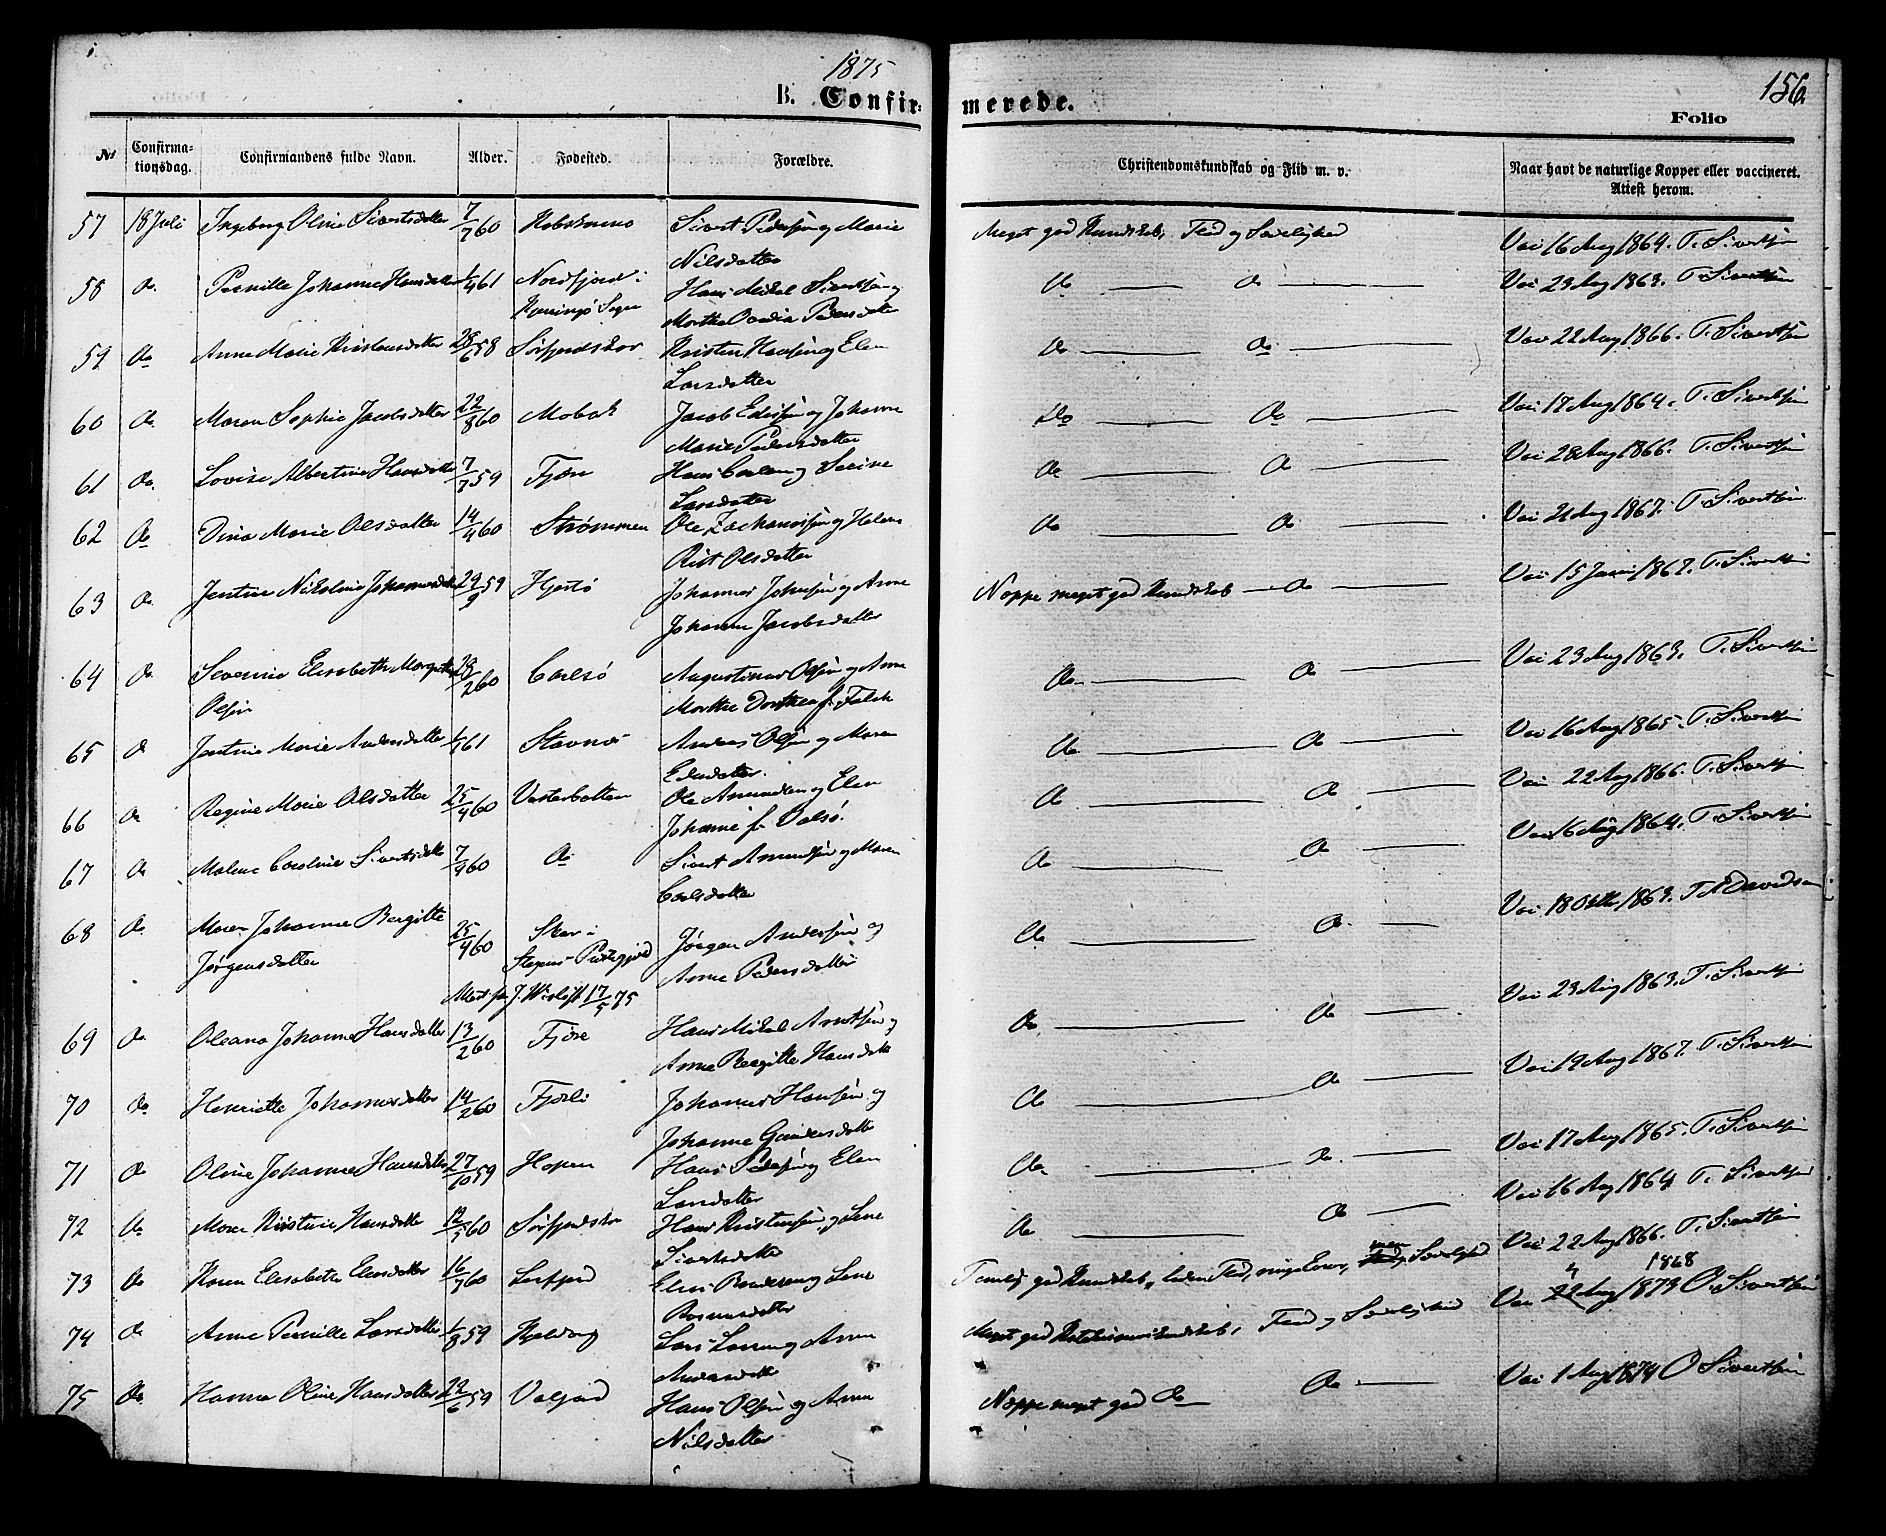 1875
156
B. Confir-
merede.
Folio
No
Confirma-
tionsdag.
Confirmandens fulde Navn.
Alder.
Fødested.
Forældre.
Christendomskundskab og Flid m. v.
Naar havt de naturlige Kopper eller vaccineret.
Attest herom.
57 18 Juli Ingeborg Oline Sivertsdatter 7/7 60 Sivert Pedersen og Marie
Nilsdatter
Meget god Kundskab, Flid og Sædelighed
Vac 16 Aug 1864. T. Sivertsen
58 do Pernille Johanne Hansdatter 1/4 61 Nordfjord i
Sogn
Hans Mikal Sivertsen og
Marthe Pedersdatter
do do
Vac 23 Aug 1863. T. Sivertsen
59 do Anne Marie Kristensdatter 28/6 58 Sørfjordskar Kristen Hansen og Elen
Larsdatter
do do
Vac 22 Aug 1866. T. Sivertsen
60 do Maren Sophie Jacobsdatter 22/8 60 Mobak Jacob Edisen og Johanne
Marie Pedersdatter
do do
Vac 17 Aug 1864. T. Sivertsen
61 do Lovise Albertine Hansdatter 7/7 59 Fjære Hans og
Larsdatter
do do
Vac 28 Aug 1866. T. Sivertsen
62 do Dina Marie Olsdatter 14/4 60 Strømmen Ole Zachariasen og Helene
Olsdatter
do do
Vac 21 Aug 1867. T. Sivertsen
63 do Jentine Nikoline Johannesdatter 29/9 59 Hjertø Johannes Johnsen og Anne
Johanna Jacobsdatter
Noppe meget god Kundskab do
Vac 15 Juni 1867. T. Sivertsen
64 do Severine Elisabeth Margrethe 28/2 60 Carlsø Augustinus Olsen og Anne
Olsen
Marthe Dorthea f. Falch
do do
Vac 23 Aug 1863. T. Sivertsen
65 do Jentine Marie Andersdatter 1/1 61 Stavnes Anders Olsen og Maren
Edisdatter.
do do
Vac 16 Aug 1865. T. Sivertsen
66 do Regine Marie Olsdatter 25/4 60 Vesterbotten Ole Amundsen og Elen
Johanne f. Valsø.
do do
Vac 22 Aug 1866. T. Sivertsen
67 do Malene Caroline Sivertsdatter 7/9 60 do Sivert Amundsen og Maren
Carlsdatter
do do
Vac 16 Aug 1864. T. Sivertsen
68 do Maren Johanne Bergitte 25/4 60 Skar i
Jørgensdatter Stegens Præstegjeld
Jørgen Andersen og
Anne Pedersdatter
do do
Vac 18 Okt 1863. T A Davidsen
17/5 75
69 do Oleana Johanne Hansdatter 13/2 60 Fjære Hans Mikal Arntsen og
Anne Bergitte Hansdatter
do do
Vac 23 Aug 1863. T. Sivertsen
70 do Henriette Johannesdatter 14/2 60 Fjærli Johannes Hansen og
Johanne Gundersdatter
do do
Vac 19 Aug 1867. T. Sivertsen
71 do Oline Johanne Hansdatter 27/10 59 Hopen Hans Pedersen og Elen
Larsdatter
do do
Vac 17 Aug 1865. T. Sivertsen
72 do Maren Kristine Hansdatter 12/5 60 Sørfjordskar Hans Kristensen og Lene
Sivertsdatter
do do
Vac 16 Aug 1864 T. Sivertsen
73 do Karen Elisabeth Eliasdatter 16/7 60 Leifjord Elias Berntsen og Lene
Rasmusdatter
Temlig god Kundskab, liden Flid, men Sædelighed
Vac 22 Aug 1866. T. Sivertsen
74 do Anne Pernille Larsdatter 1/8 59 Lars Larsen og Anne
Andersdatter
Meget god Katekismuskundskab, Flid og Sædelighed
1868
Vac 22 Aug 1873 O. Sivertsen
75 do Hanna Oline Hansdatter 22/6 59 Valfjord Hans Olsen og Anne
Nilsdatter
Noppe meget god do do
Vac 1 Aug 1874 O Sivertsen